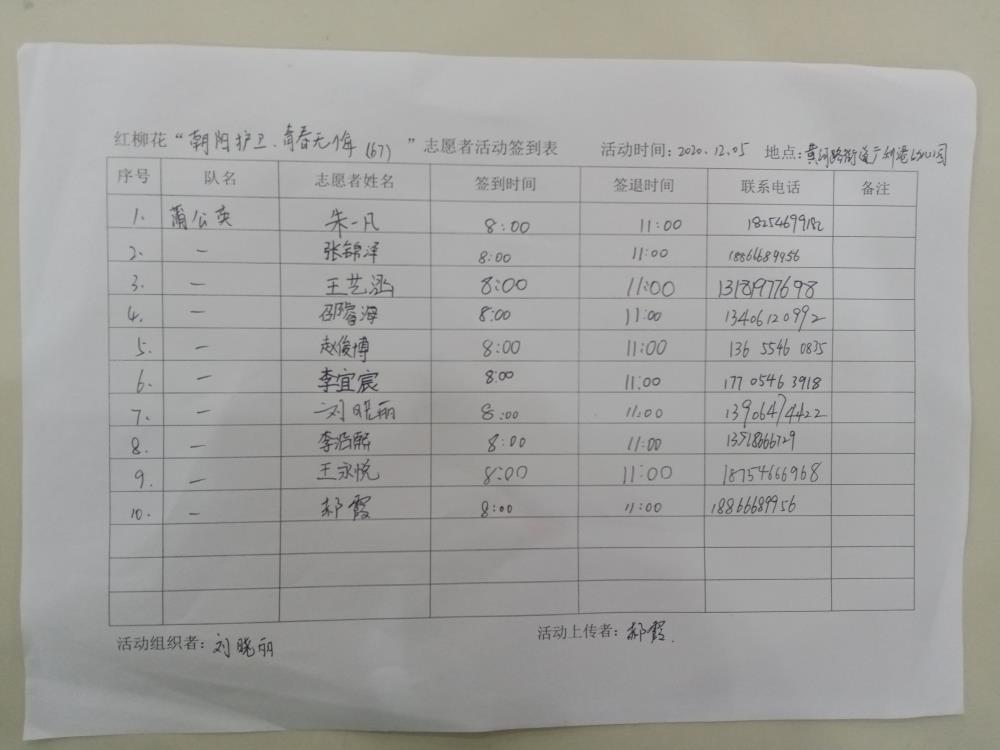 红柳花“朝阳护卫.青春无悔(67)”志愿者活动签到表 活动时间:2020.12.05 地点:黄河路街道广利港
序号 队名 志愿者姓名 签到时间 签退时间 联系电话 备注
1. 蒲公英 朱一凡 8:00 11:00 18254699182
2. — 张锦泽 8:00 11:00 18866689956
3. — 王艺涵 8:00 11:00 13181977698
4. — 邵睿海 8:00 11:00 13406120992
5. — 赵俊博 8:00 11:00 136 5546 0835
6. — 李宜宸 8:00 11:00 177 0546 3918
7. — 刘晓丽 8:00 11:00 13906474422
8. — 李浩熙 8:00 11:00
9. — 王永悦 8:00 11:00 18754666968
10. — 郝霞 8:00 11:00 18866689956
活动组织者:刘晓丽 活动上传者:郝霞.